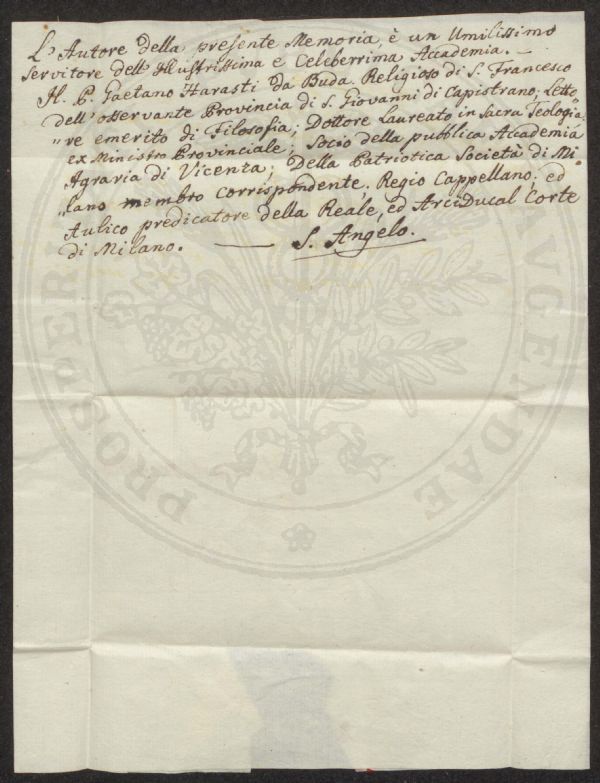 L'Autore della presente Memoria, è un Umilissimo
Servitore dell'Illustrissima e Celeberrima Accademia. —
Il P. Gaetano Harasti da Buda Religioso di S. Francesco
dell'osservante Provincia di S. Giovanni di Capistrano; Letto„
„re emerito di Filosofia; Dottore Laureato in Sacra Teologia
ex Ministro Provinciale; Socio della pubblica Accademia
Agraria di Vicenza; Della Patriotica Società di Mi„
„lano membro corrispondente; Regio Cappellano; ed
Aulico predicatore della Reale, ed Arciducal Corte
di Milano. — S. Angelo.
PROSPERI
AVGENDAE